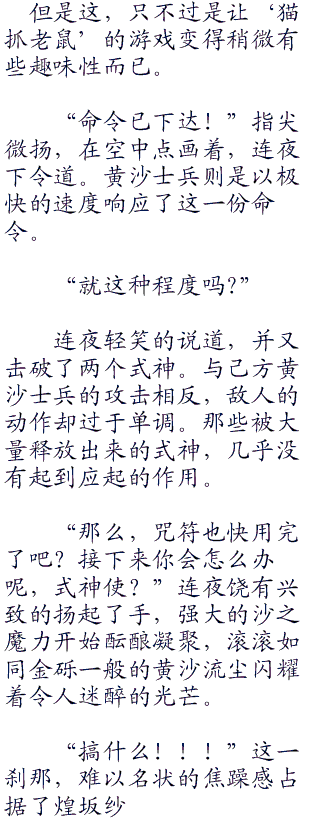 但是这，只不过是让‘猫
抓老鼠’的游戏变得稍微有
些趣味性而已。
“命令已下达！”指尖
微扬，在空中点画着，连夜
下令道。黄沙士兵则是以极
快的速度响应了这一份命
令。
“就这种程度吗?”
连夜轻笑的说道，并又
击破了两个式神。与己方黄
沙士兵的攻击相反，敌人的
动作却过于单调。那些被大
量释放出来的式神，几乎没
有起到应起的作用。
“那么，咒符也快用完
了吧？接下来你会怎么办
呢，式神使？”连夜饶有兴
致的扬起了手，强大的沙之
魔力开始酝酿凝聚，滚滚如
同金砾一般的黄沙流尘闪耀
着令人迷醉的光芒。
“搞什么！！！”这一
刹那，难以名状的焦躁感占
据了煌坂纱